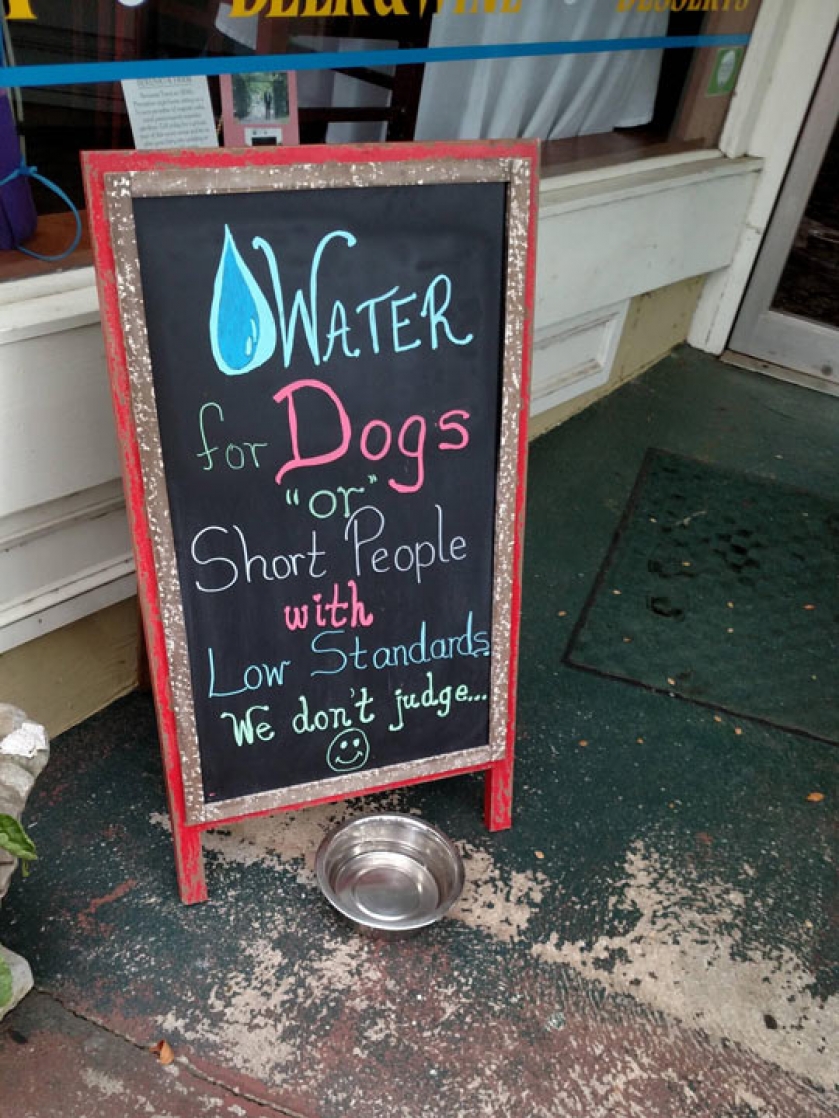 BEER & WINE DESSERTS
WATER
for Dogs
"or"
Short People
with
Low Standards.
We don't judge...